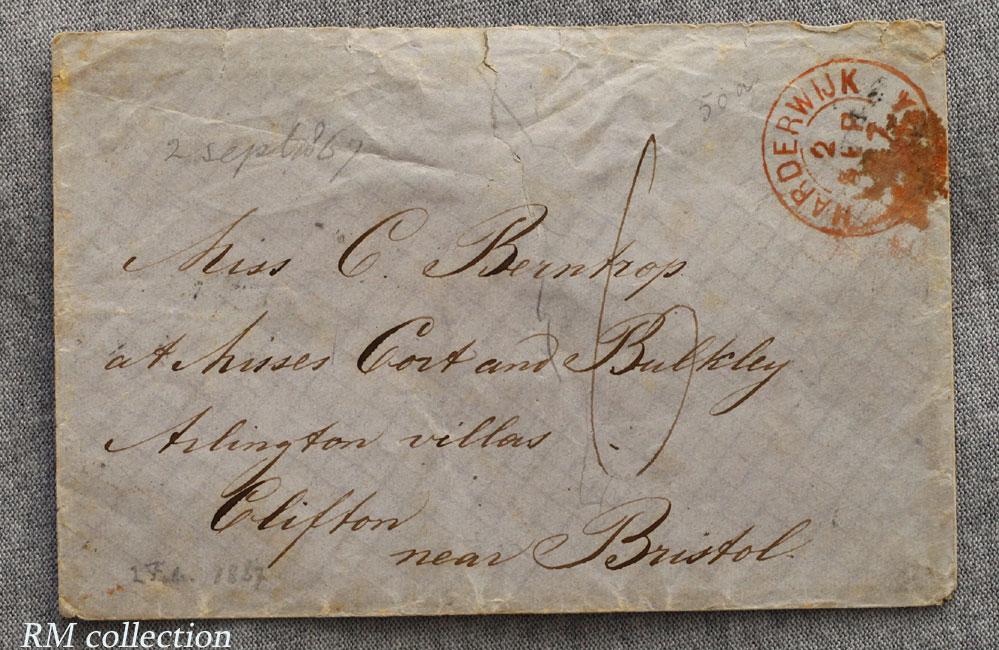 50
HARDERWIJK
2
SEP
7
2 sept 1867
Miss C. Berntrop
at Misses Cort and Bulkley
Arlington villas
Clifton
near Bristol.
6
1867
RM collection